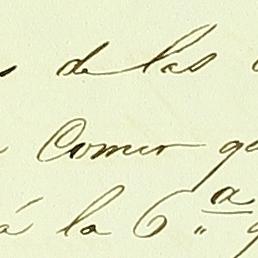 de las
Comer
á la 6.ª